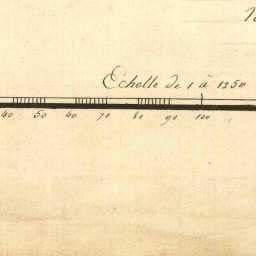 Echelle de 1 à 1250
40 50 60 70 80 90 100